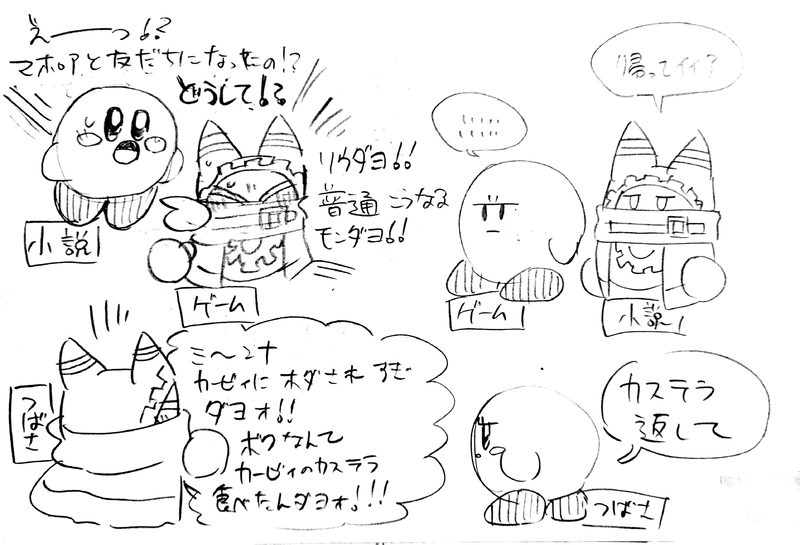 えーーっ!?
マホロアと友だちになったの!?
どうして!?
小説
ソウダヨ!!
普通こうなる
モンダヨ!!
ゲーム
……
……
ゲーム
帰ってイイ?
小説
つばさ
ミ〜ンナ
カービィにホダされすぎ
ダヨォ!!
ボクなんて
カービィのカステラ
食べたんダヨォ!!!
カステラ
返して
つばさ